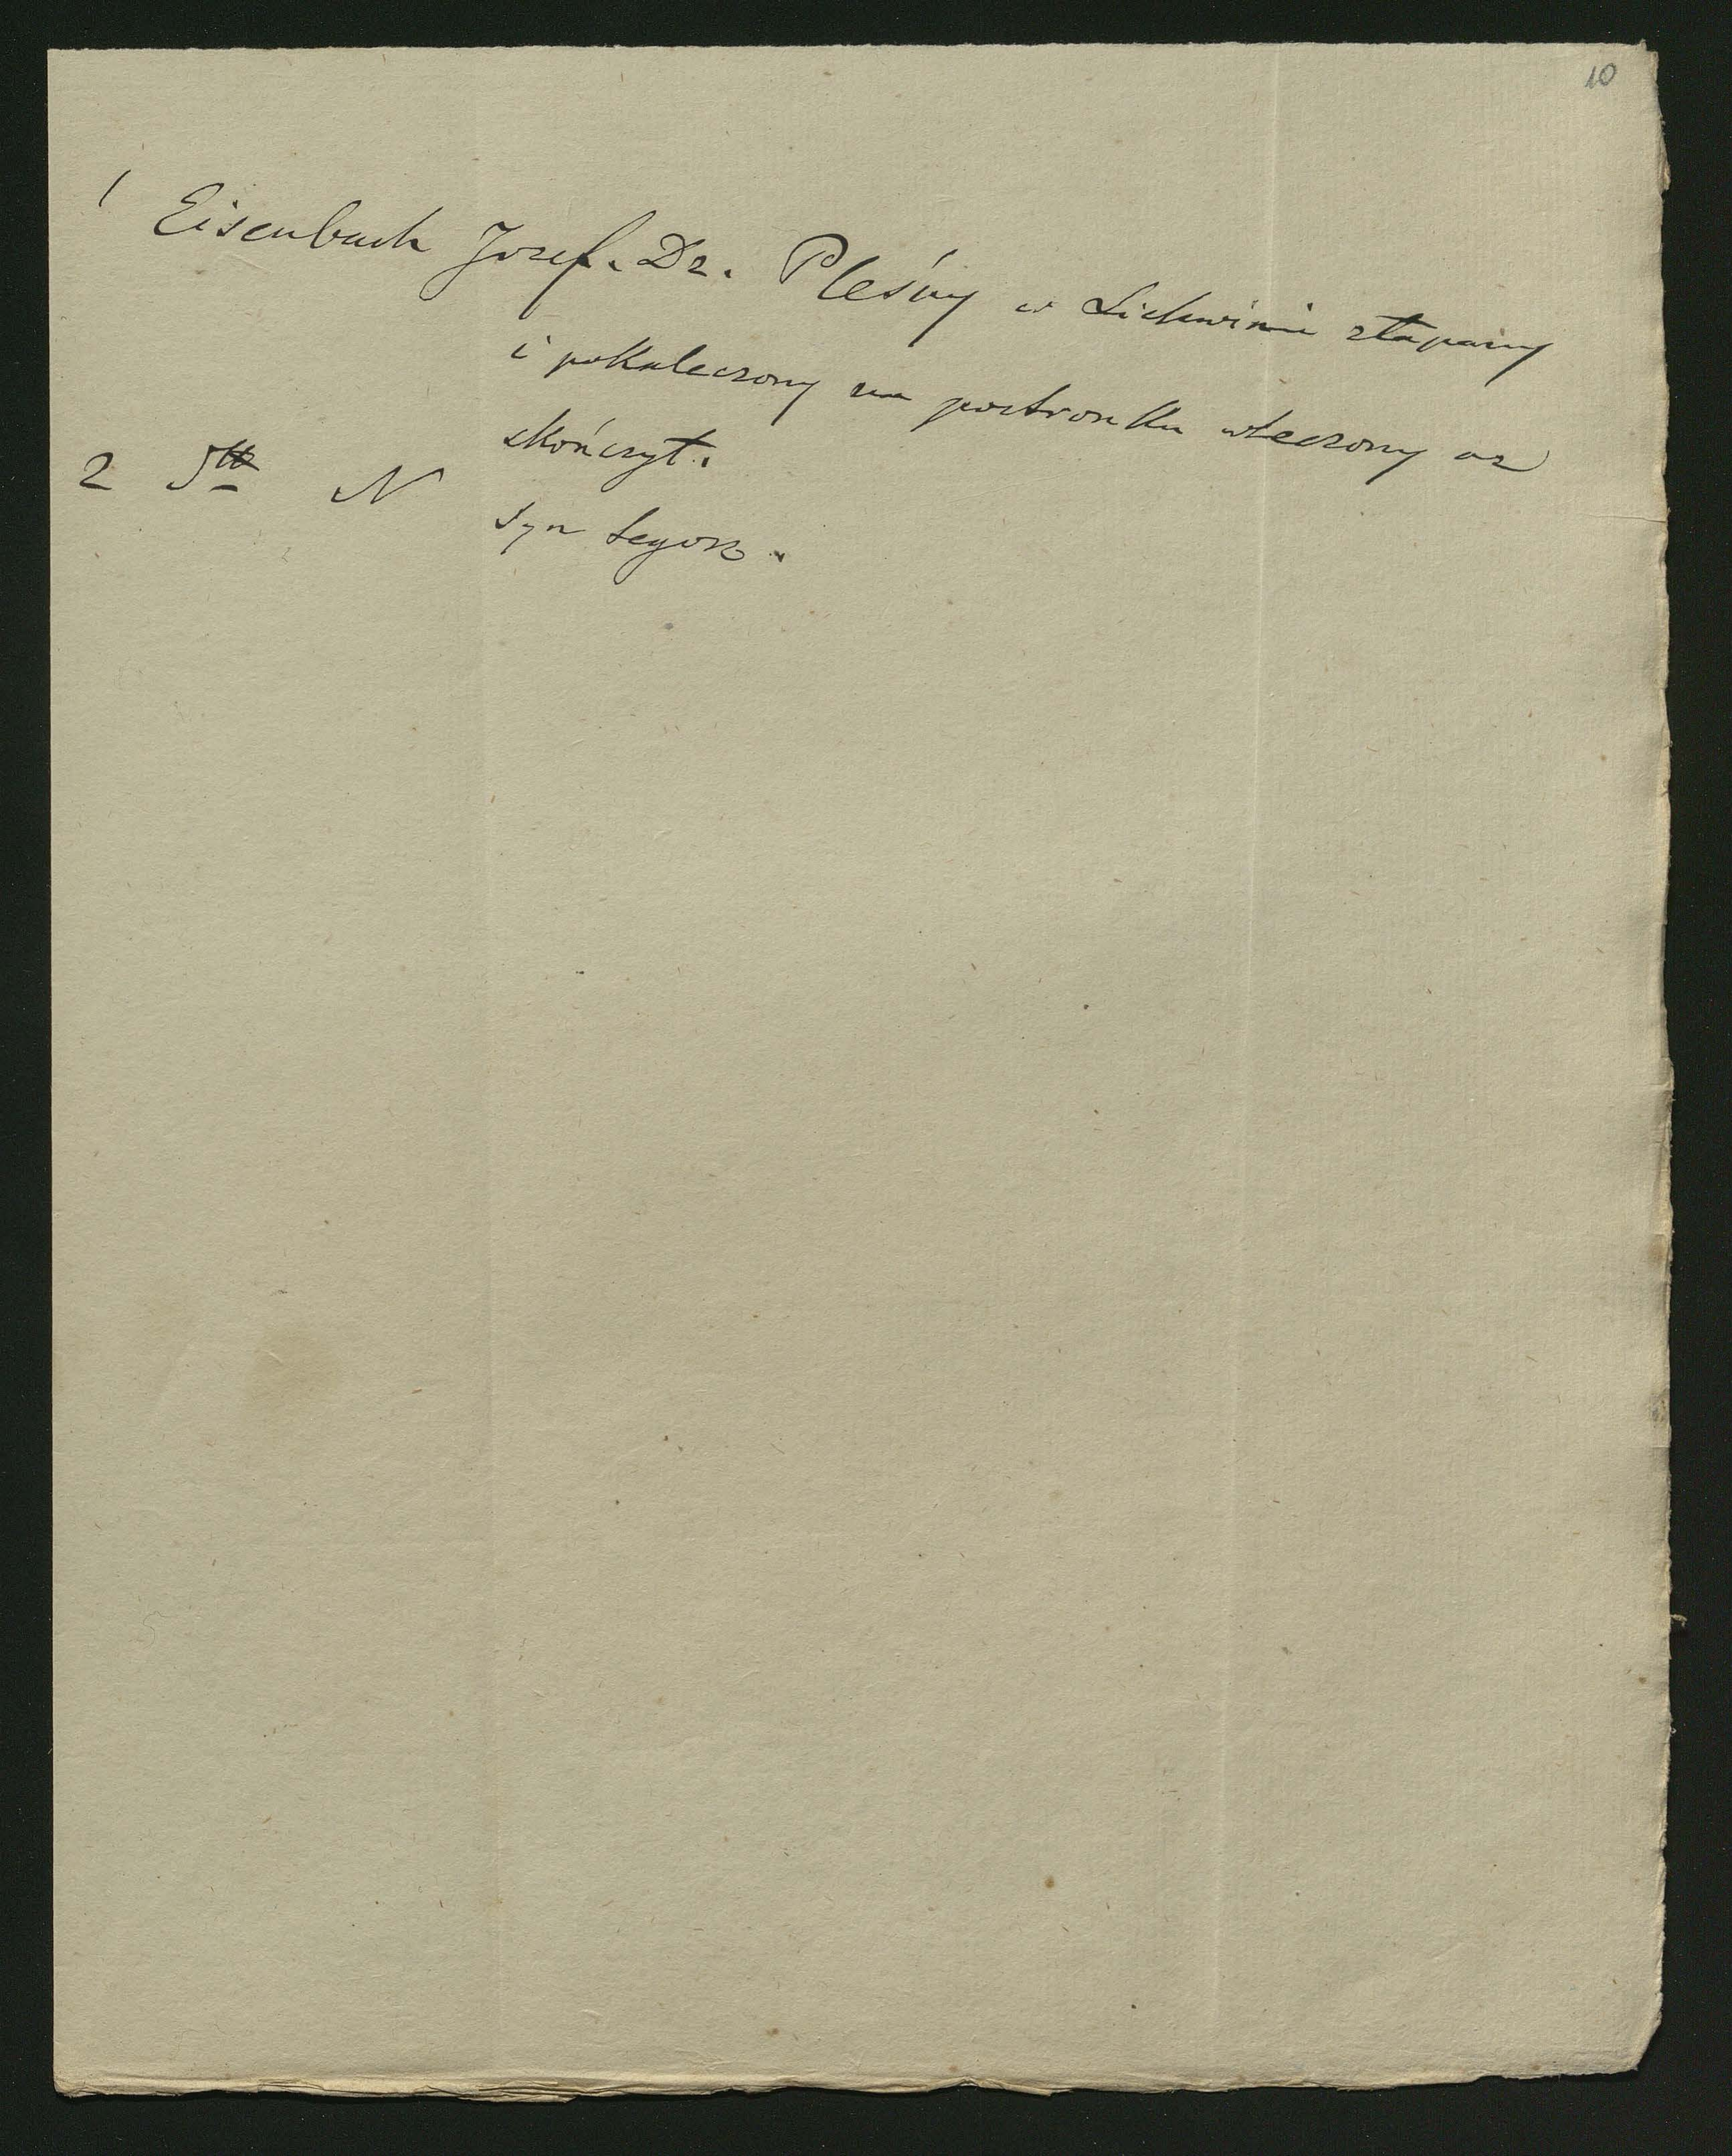 10
1 Eisenbach Jozef. Dz. Pleśny w Lichwinie złapany
i pokaleczony na postronku wleczony az
skończył.
2 N syn tegoz.